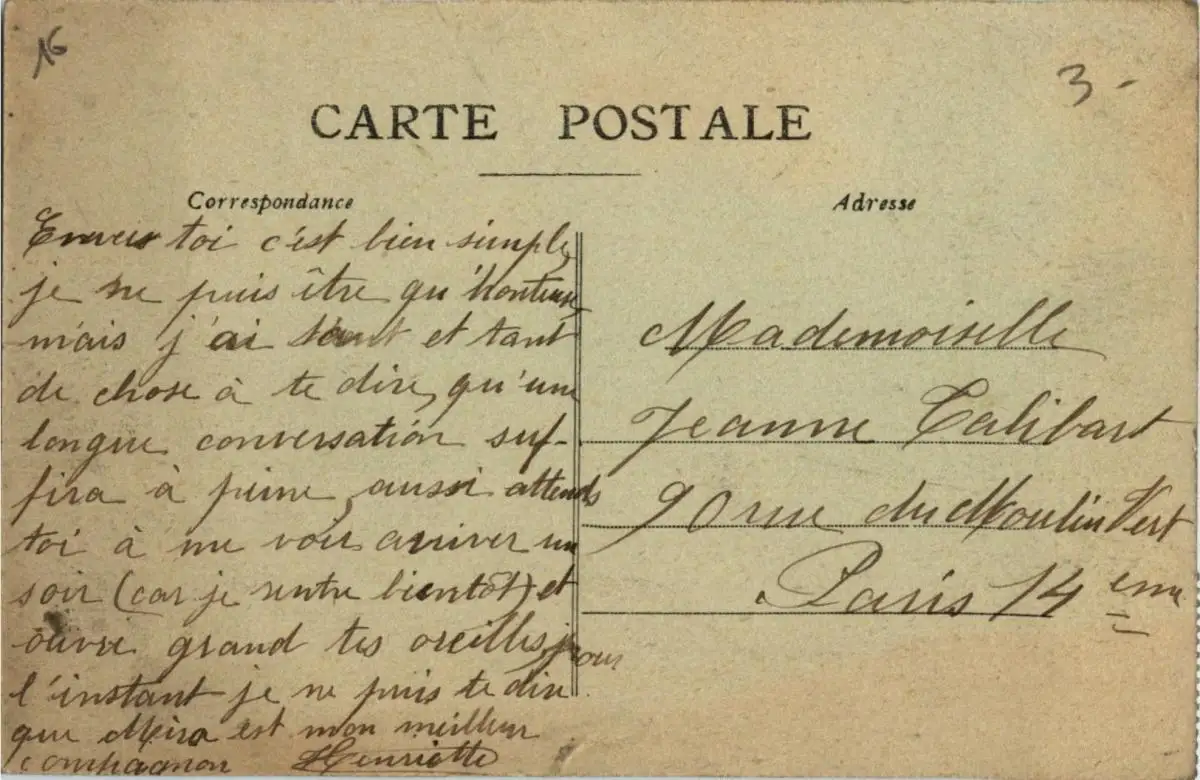 16
3 -
CARTE POSTALE
Correspondance
Envers toi c'est bien simple,
je ne puis être qu'honteuse,
mais j'ai tant et tant
de chose à te dire, qu'une
longue conversation suf-
fira à peine, aussi attends
toi à me voir arriver un
soir (car je rentre bientôt) et
ouvre grand tes oreilles, pour
l'instant je ne puis te dire
que Mira est mon meilleur
compagnon Henriette
Adresse
Mademoiselle
Jeanne Talibart
90 rue du Moulin Vert
Paris 14 eme